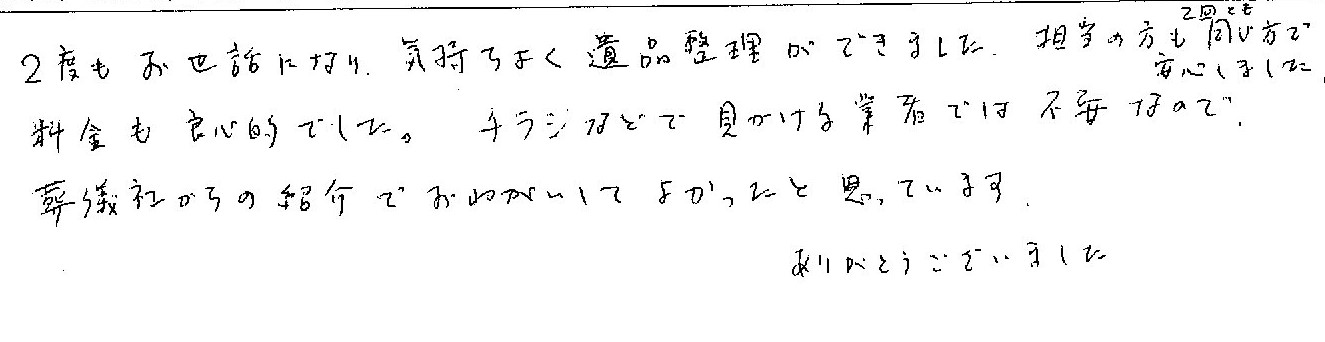 2度もお世話になり、気持ちよく遺品整理ができました。担当の方も2回とも同じ方で安心しました。
料金も良心的でした。チラシなどで見かける業者では不安なので、
葬儀社からの紹介でおねがいしてよかったと思っています。
ありがとうございました